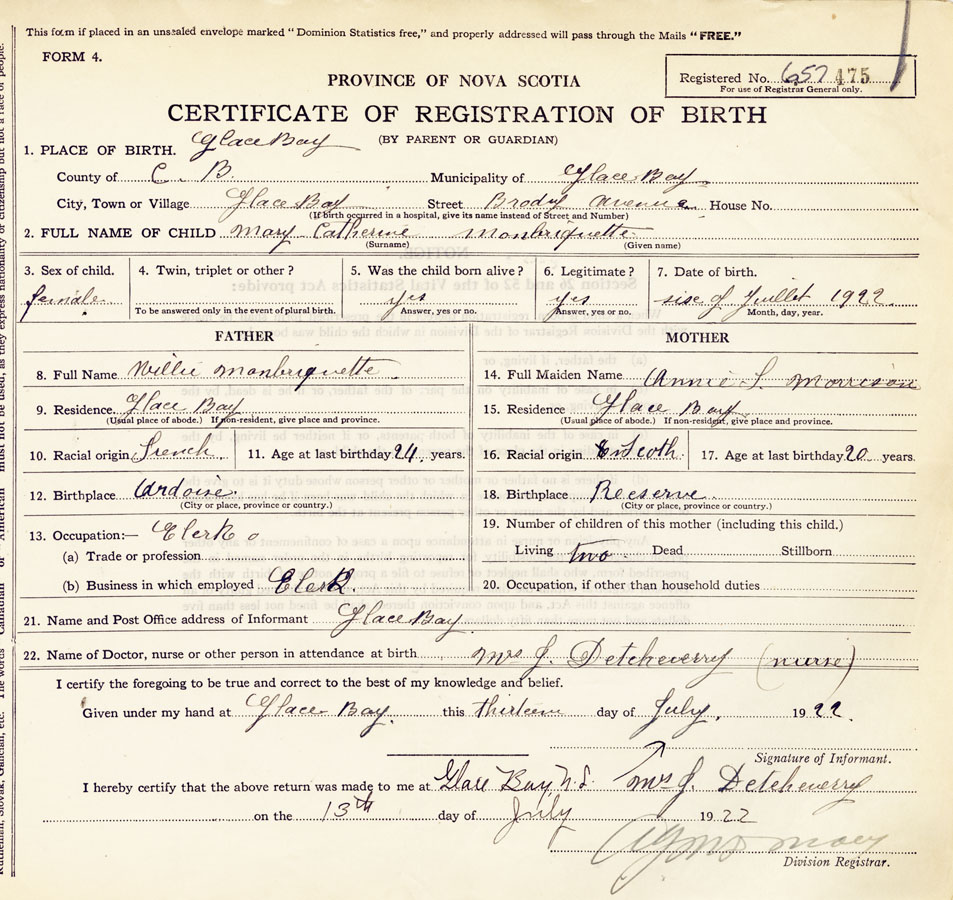 This form if placed in an unsealed envelope marked "Dominion Statistics free," and properly addressed will pass through the Mails "FREE."
FORM 4.
PROVINCE OF NOVA SCOTIA
Registered No. 657 475
For use of Registrar General only.
CERTIFICATE OF REGISTRATION OF BIRTH
(BY PARENT OR GUARDIAN)
1. PLACE OF BIRTH. Glace Bay
County of C. B. Municipality of Glace Bay
City, Town or Village Glace Bay Street Brody Avenue House No.
(If birth occurred in a hospital, give its name instead of Street and Number)
2. FULL NAME OF CHILD Mary Catherine Monbriquette
(Surname) (Given name)
3. Sex of child. 4. Twin, triplet or other? 5. Was the child born alive? 6. Legitimate? 7. Date of birth.
female yes yes sise of Juillet 1922
To be answered only in the event of plural birth. Answer, yes or no. Answer, yes or no. Month, day, year.
FATHER MOTHER
8. Full Name Willie Monbriquette 14. Full Maiden Name Annie S. Morrison
9. Residence Glace Bay 15. Residence Glace Bay
(Usual place of abode.) If non-resident, give place and province. (Usual place of abode.) If non-resident, give place and province.
10. Racial origin French 11. Age at last birthday 24 years. 16. Racial origin Scoth 17. Age at last birthday 20 years.
12. Birthplace Ardoise 18. Birthplace Reeserve
(City or place, province or country.) (City or place, province or country.)
13. Occupation:— Clerk 19. Number of children of this mother (including this child.)
(a) Trade or profession Living two Dead Stillborn
(b) Business in which employed Clerk 20. Occupation, if other than household duties
21. Name and Post Office address of Informant Glace Bay
22. Name of Doctor, nurse or other person in attendance at birth Mrs J. Detcheverry (nurse)
I certify the foregoing to be true and correct to the best of my knowledge and belief.
Given under my hand at Glace Bay. this thirteen day of July, 1922.
Signature of Informant.
I hereby certify that the above return was made to me at Glace Bay N.S. Mrs J. Detcheverry
on the 13th day of July 1922
Division Registrar.